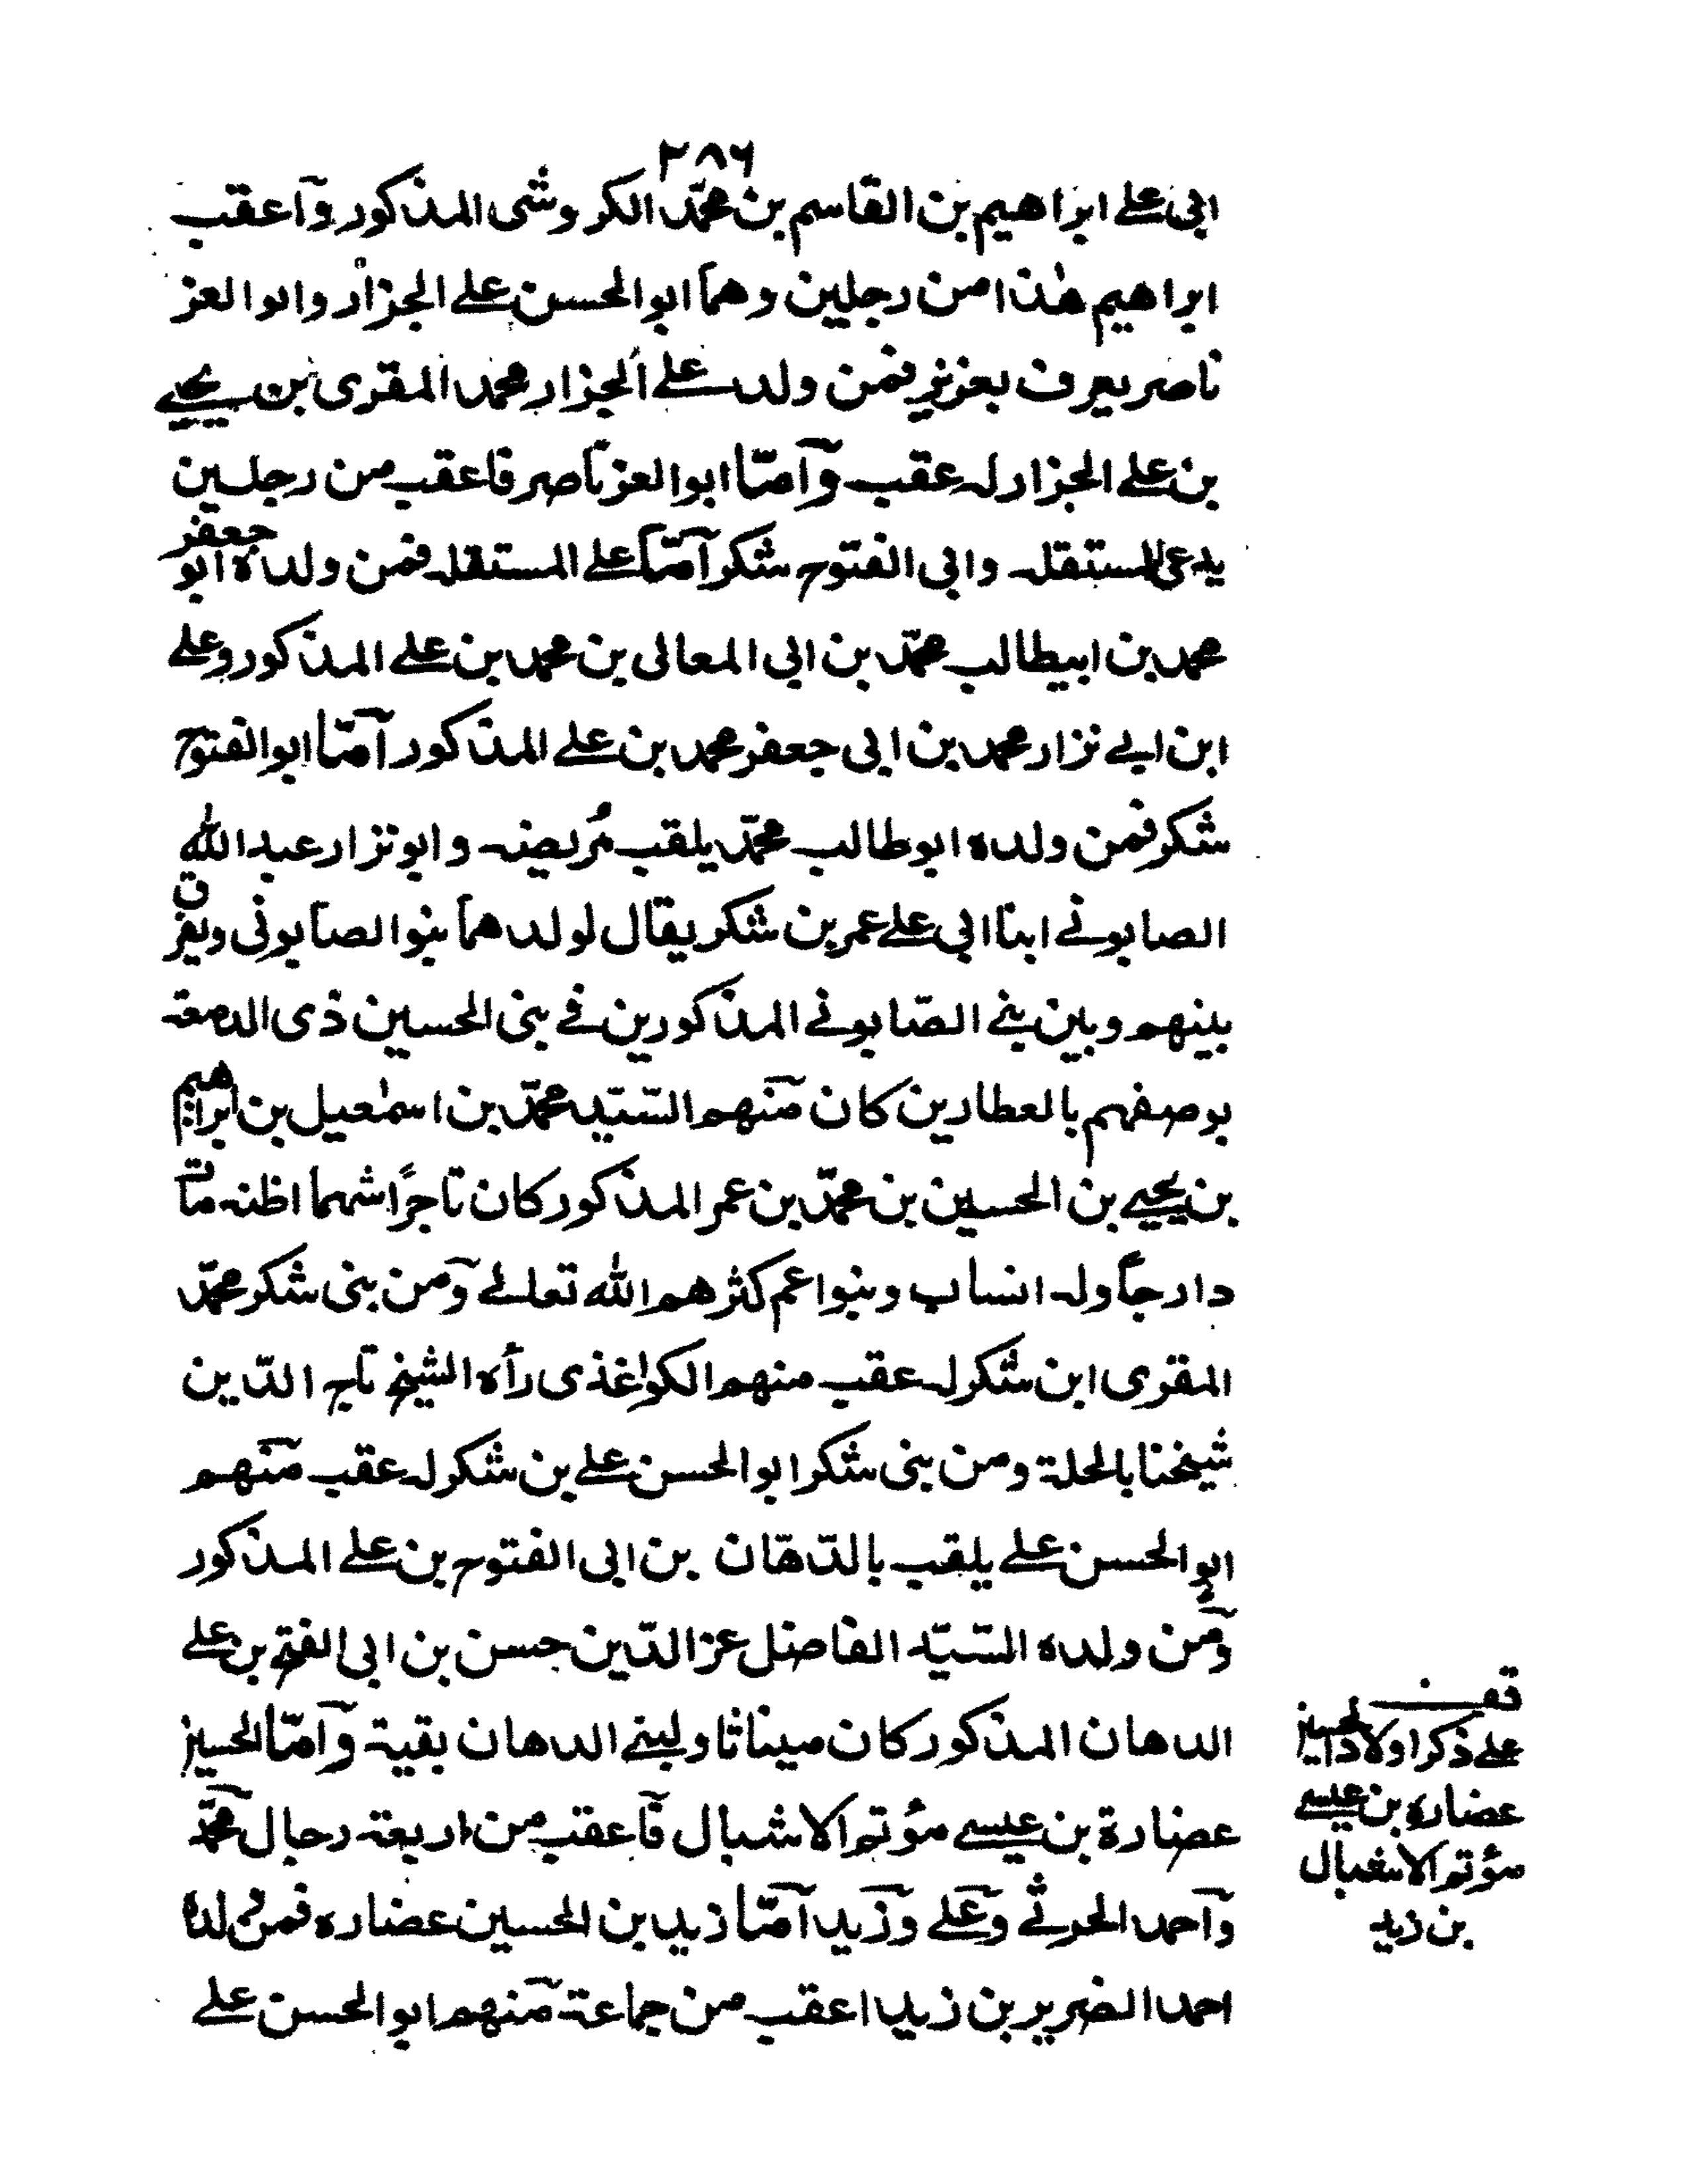 ٢٨٦
ابى على ابراهيم بن القاسم بن محمّد الكروشى المذكور وآعقب
ابراهيم هٰذا من رجلين وهما ابو الحسن على الجزار وابو العز
ناصر يعرف بعزيز فمن ولد على الجزار محمد المقرى بن يحيى
بن على الجزار له عقب وآمّا ابو العز ناصر فاعقب من رجلين
يدعى المستقل وابى الفتوح شكر آمّا على المستقل فمن ولده ابو جعفر
محمد بن ابيطالب محمّد بن ابى المعالى بن محمد بن على المذكور وعلى
ابن ابى نزار محمد بن ابى جعفر محمد بن على المذكور آمّا ابو الفتوح
شكر فمن ولده ابو طالب محمّد يلقب مُريضه وابو نزار عبد الله
الصابونى ابنا ابى على عمر بن شكر يقال لولدهما بنوا الصابونى ويفرق
بينهم وبين بنى الصّابونى المذكورين فى بنى الحسين ذى الدمعة
بوصفهم بالعطارين كان منهم السّيّد محمّد بن اسمٰعيل بن ابراهيم
بن يحيى بن الحسين بن محمّد بن عمر المذكور كان تاجرًا شهما اظنه مات
دارجاً وله انساب وبنوا عم كثرهم الله تعالى وٓمن بنى شكر محمّد
المقرى ابن شكر له عقب منهم الكواغذى رأه الشيخ تاج الدّين
شيخنا بالحلة ومن بنى شكر ابو الحسن على بن شكر له عقب منهم
ابو الحسن على يلقب بالدّهّان بن ابى الفتوح بن على المذكور
وٓمن ولده السّيّد الفاضل عز الدّين حسن بن ابى الفتح بن على
الدهان المذكور كان ميناثا ولبنى الدهان بقية وآمّا الحسين
عضارة بن عيسى مؤتم الاشبال فآعقب من اربعة رجال محمّد
وآحمد الحرثى وعلى وزيد آمّا زيد بن الحسين عضاره فمن ولده
احمد الضرير بن زيد اعقب من جماعة منهم ابو الحسن على
قف
على ذكر اولاد الحسين
عضاره بن عيسى
مؤتم الاشبال
بن زيد